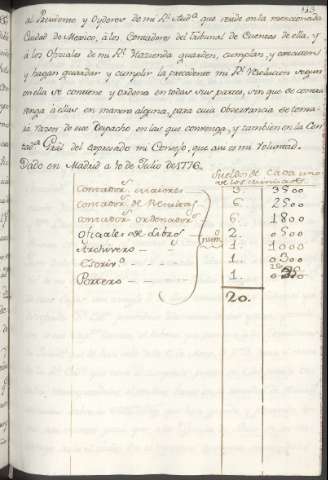 al Presidente y Oydores de mi Rl. Aud.a que reside en la mencionada
Ciudad de Mexico, à los Contadores del Tribunal de Cuentas de ella, y
à los Oficiales de mi Rl. Hazienda guarden, cumplan, y executen
y hagan guardar y cumplir la precedente mi Rl. Resolucion segun
en ella se contiene y ordena en todas sus partes, sin que se contra
venga à ellas en manera alguna, para cuia observancia se toma
rá razon de este Despacho en las que convenga, y tambien en la Con
tad.a Gral. del expresado mi Consejo, que asi es mi Voluntad.
Dado en Madrid a 10 de Julio de 1776.
Sueldos de cada uno
Contador.s maiores 3 3500
Contador.s de Resultas 6. 2500
Contador.s ordenador.s 6. 1800
Oficiales de Libros 2. 0500
Archivero 1. 1000
Escriv.o 1. 0300
Portero 1.
20.